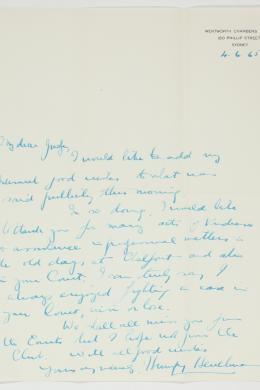 WENTWORTH CHAMBERS
180 PHILLIP STREET
SYDNEY
4.6.65
My dear Judge,
I would like to add my
personal good wishes to what was
said publicly this morning.
In so doing, I would like
to thank you for many acts of kindness
& assistance in professional matters in
the old days at and also
in your Court. I can truly say I
always enjoyed fighting a case in
your Court, win or lose.
We shall all miss you from
the Courts but I hope not from the
Club. With all good wishes
Yours very sincerely